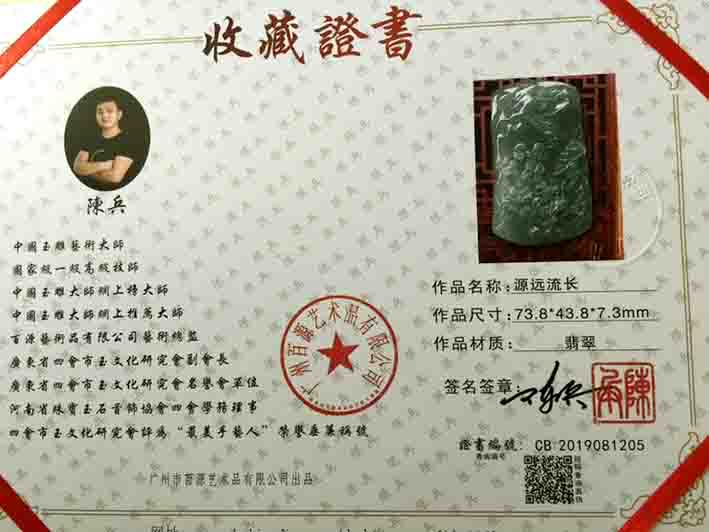 收藏證書
陳兵
中國玉雕藝術大師
國家級一級高級技師
中國玉雕大師網上榜大師
中國玉雕大師網上推薦大師
百源藝術品有限公司藝術總監
廣東省四會市玉文化研究會副會長
廣東省四會市玉文化研究會名譽會單位
河南省珠寶玉石首飾協會四會學務理事
四會市玉文化研究會評為“最美手藝人”榮譽
广州市百源艺术品有限公司出品
作品名称:源远流长
作品尺寸:73.8*43.8*7.3mm
作品材质: 翡翠
签名签章:
陳兵
證書編號: CB 2019081205
查询编号
广州百源艺术品有限公司